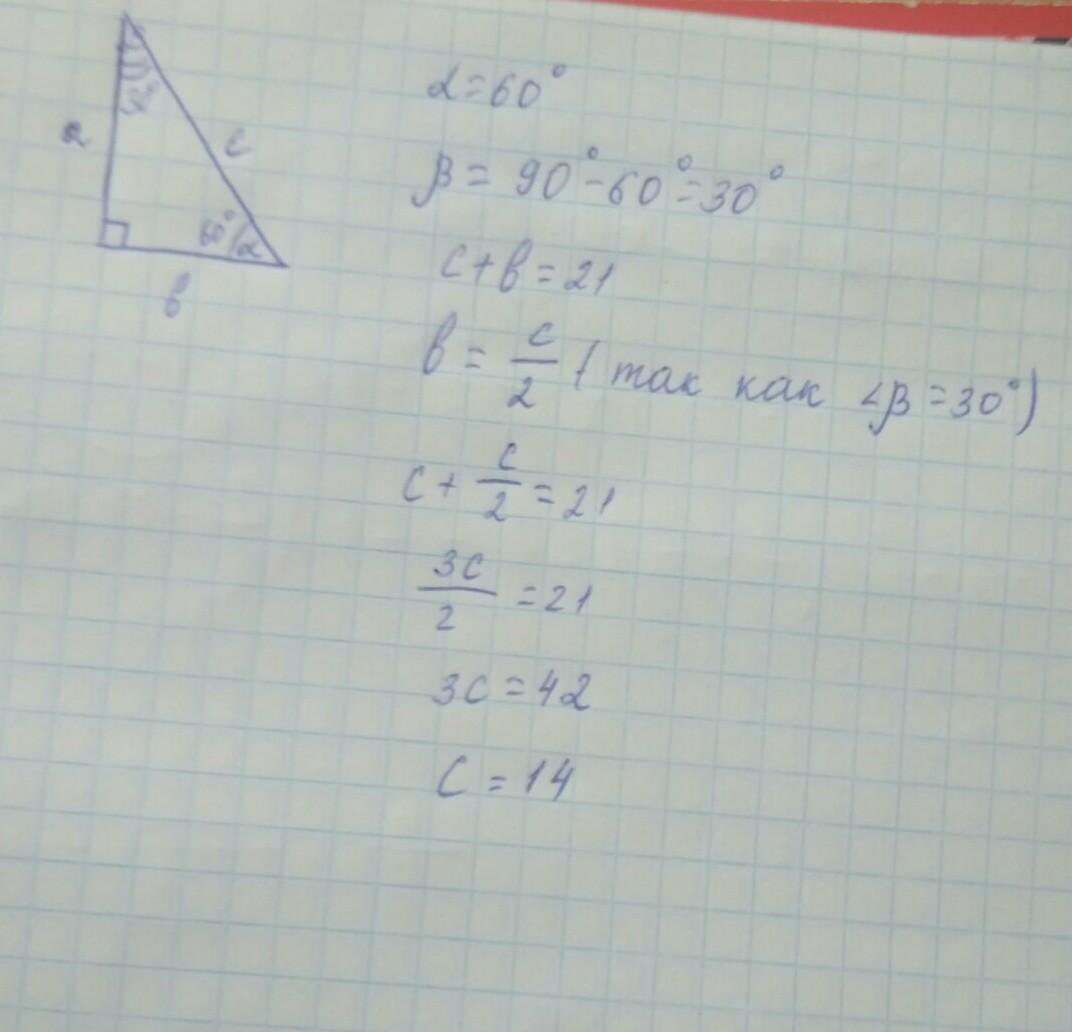 a
c
60° α
в
α=60°
β = 90°-60°=30°
c+в=21
в = c/2 (так как <β=30°)
c+ c/2 =21
3c/2 =21
3c=42
C=14